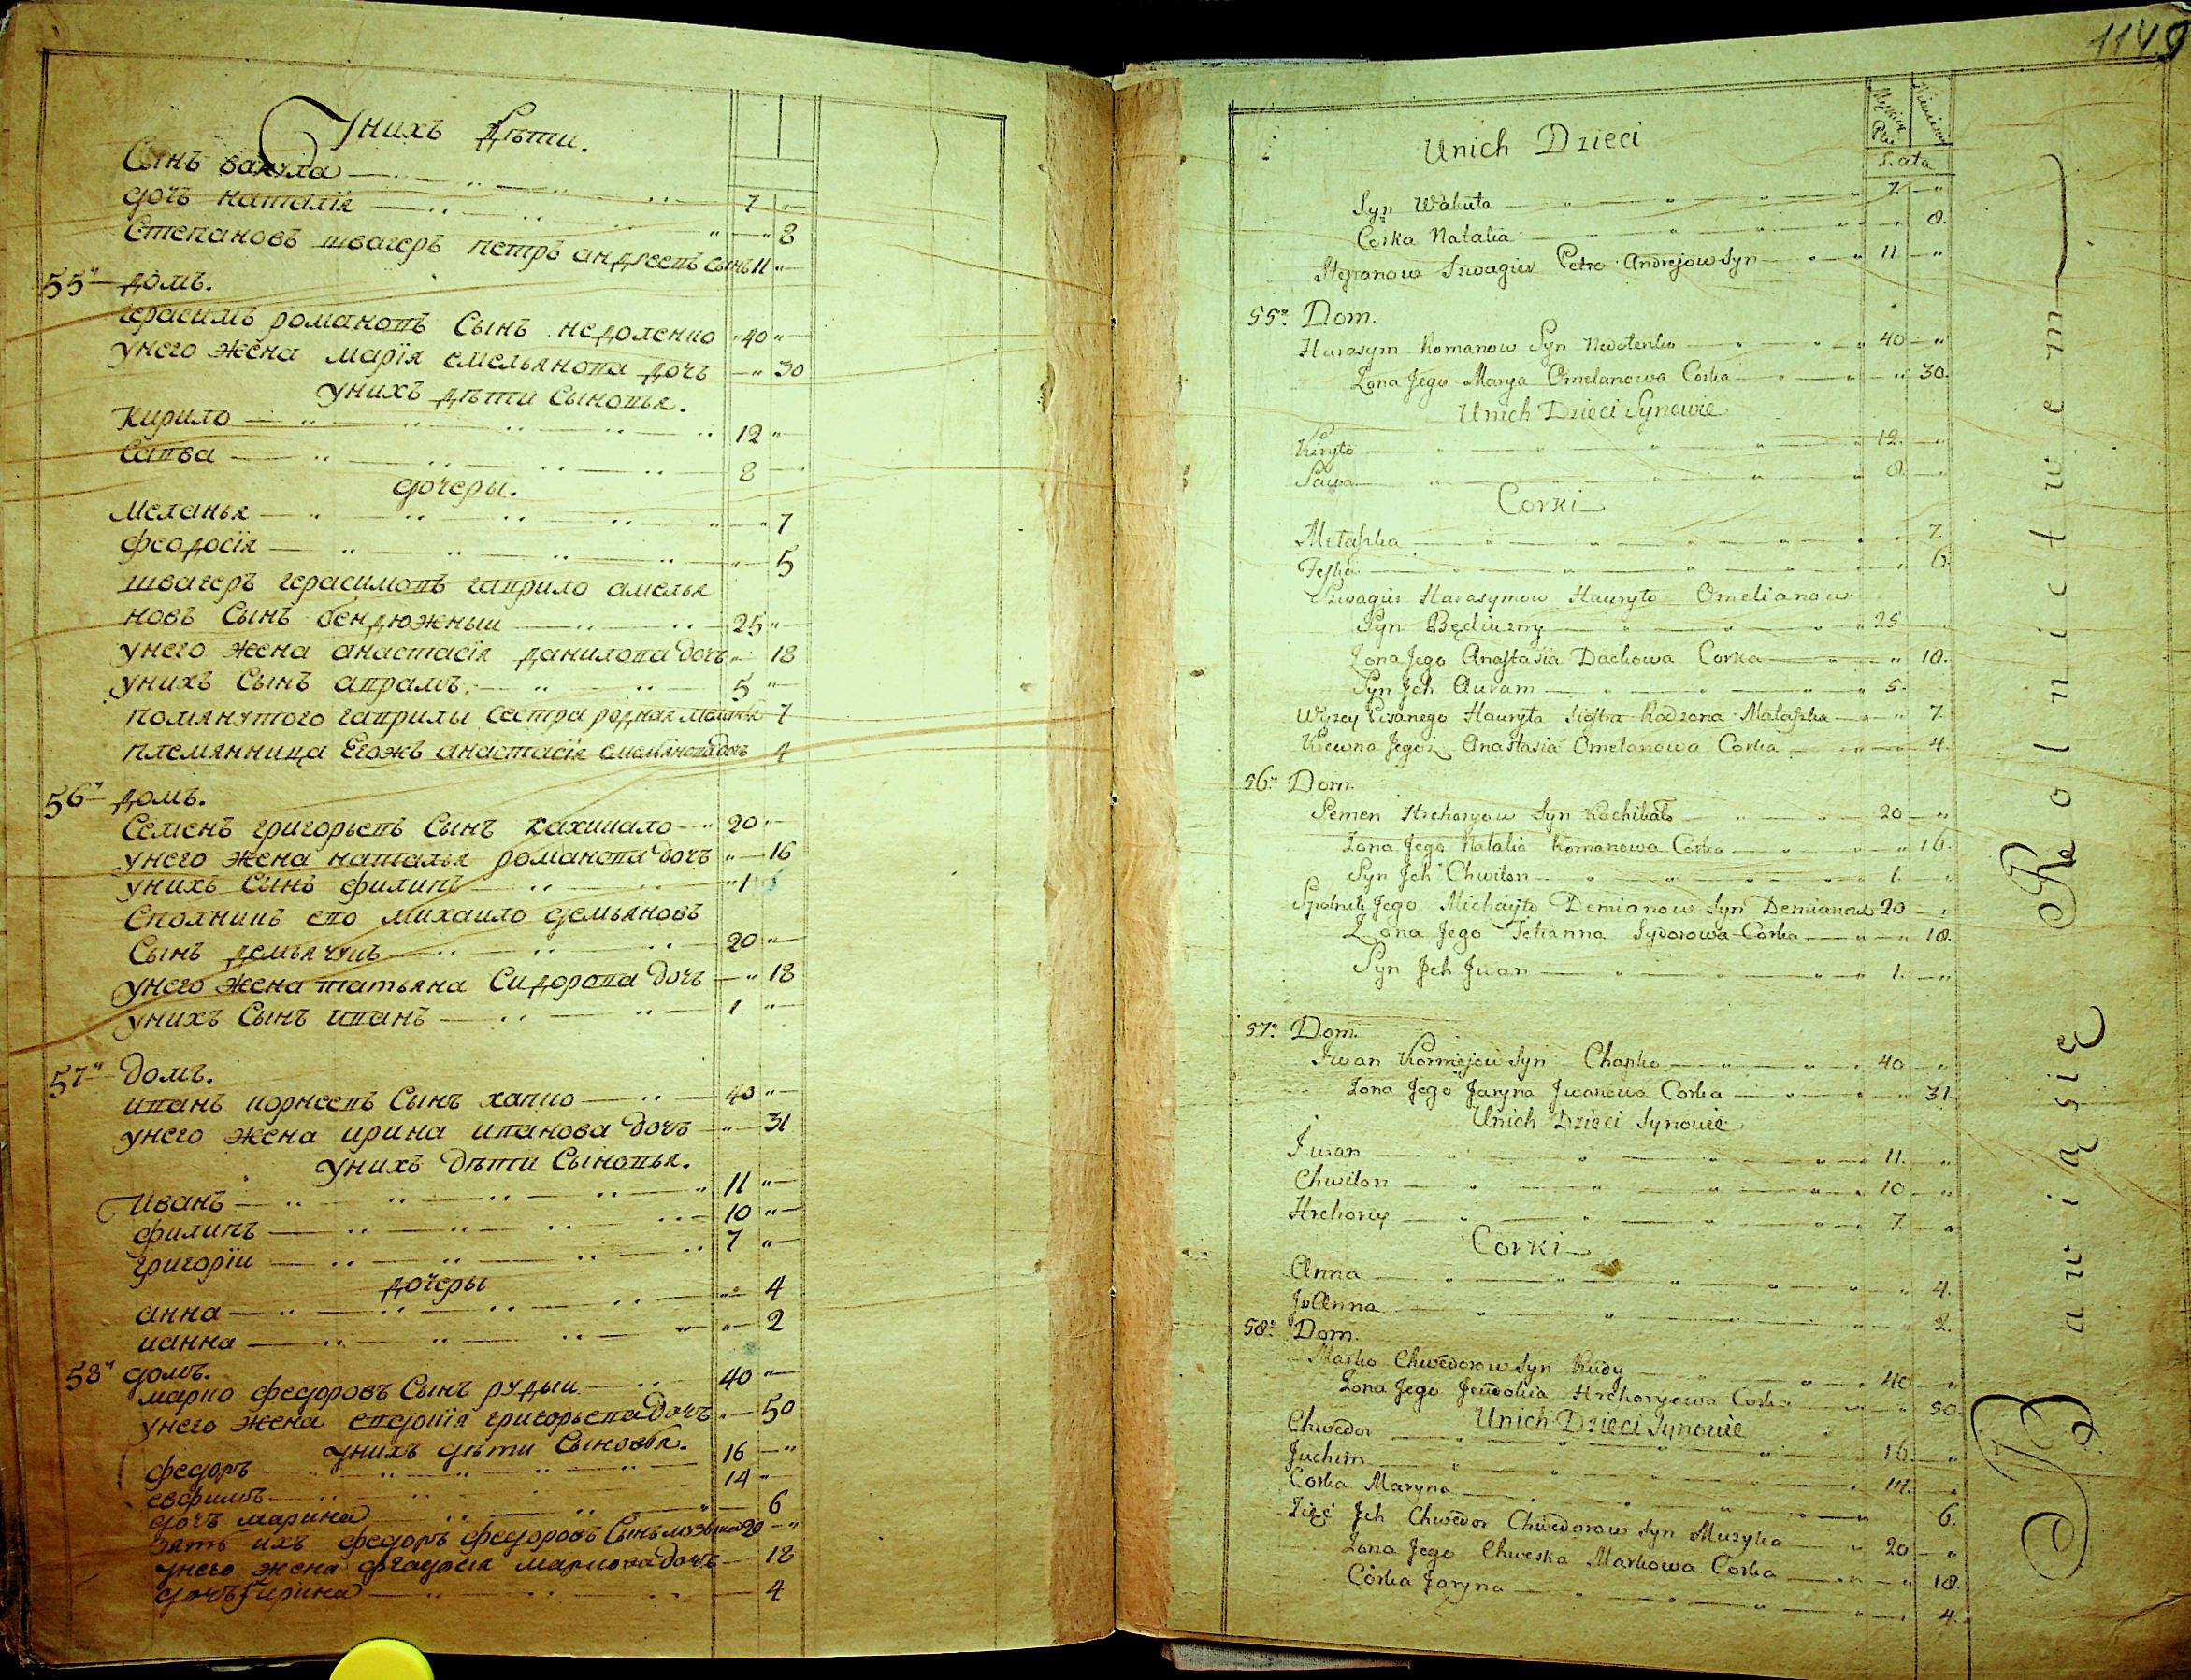 Унихъ Дѣти.
Сынъ вакула — 7 —
дочъ наталія — 8
Степановъ швагеръ петръ андреевъ сынъ 11 —
55й домъ.
герасимъ романовъ Сынъ недоленко 40 —
унего жена марія емельянова дочъ — 30
унихъ дѣти Сыновья.
Кирило — 12 —
Савва — 8 —
дочеры.
меланья — 7
феодосія — 5
швагеръ герасимовъ гаврило амелья
новъ Сынъ бендюжныи — 25 —
унего жена анастасія данилова дочъ — 18
унихъ Сынъ аврамъ. — 5 —
помянутого гаврилы сестра родная 7
племянница Егожъ анастасія емельянова дочъ 4
56й домъ.
Семенъ григорьевъ Сынъ кахикало — 20 —
унего жена наталья романова дочъ — 16
унихъ Сынъ филипъ — 1
Сполникъ его михаило демьяновъ
Сынъ демьячукъ — 20 —
унего жена татьяна Сидорова дочъ — 18
унихъ Сынъ иванъ — 1 —
57й домъ.
иванъ корнеевъ Сынъ хапко — 40 —
унего жена ирина иванова дочъ — 31
унихъ дѣти Сыновья.
Иванъ — 11 —
филипъ — 10 —
григоріи — 7 —
дочеры
анна — 4
ианна — 2
58й домъ.
марко федоровъ Сынъ рудыи — 40 —
унего жена евдокія григорьева дочъ — 50
унихъ дѣти Сыновья.
федоръ — 16 —
евфимъ — 14 —
дочъ марина — 6
зять ихъ федоръ федоровъ Сынъ музыка 20 —
унего жена феодосія маркова дочъ — 18
дочъ ирина — 4
1149
Męskiej Płci Żeńskiej
Lata
Unich Dzieci
Syn Wakuła — 7. —
Corka Natalia — 8.
Stepanow Szwagier Petro Andrejow Syn — 11 —
55. Dom.
Harasym Romanow Syn Nedolenko — 40 —
Zona Jego Marya Omelanowa Corka — 30.
Unich Dzieci Synowie
Kiryło — 12. —
Sawa — 8. —
Corki
Mełaszka — 7.
Feśka — 6.
Szwagier Harasymow Hawryło Omelianow
Syn Będiuzny — 25 —
Zona Jego Anastasia Corka — 18.
Syn Jch Awram — 5. —
Wyzey Pisanego Hawryła Siostra Rodzona Małaszka — 7.
Krewna Jegoż Anastasia Omelanowa Corka — 4.
56. Dom.
Semen Hrehoryow Syn Kachikało — 20 —
Zona Jego Natalia Romanowa Corka — 16.
Syn Jch Chwilon — 1. —
Spolnik Jego Michayło Demianow Syn 20 —
Zona Jego Tetianna Sydorowa Corka — 18.
Syn Jch Jwan — 1. —
57. Dom.
Jwan Korniejow Syn Chapko — 40 —
Zona Jego Jaryna Jwanowa Corka — 31.
Unich Dzieci Synowie
Jwan — 11. —
Chwilon — 10 —
Hrehory — 7. —
Corki
Anna — 4.
JoAnna — 2.
58. Dom.
Marko Chwedorow Syn Rudy — 40 —
Zona Jego Jewdokia Hrehoryowa Corka — 50.
Unich Dzieci Synowie
Chwedor — 16. —
Juchim — 14. —
Corka Maryna — 6.
Zięć Jch Chwedor Chwedorow Syn Muzyka — 20 —
Zona Jego Chweska Markowa Corka — 18.
Corka Jaryna — 4.
Bawią się Rolnictwem